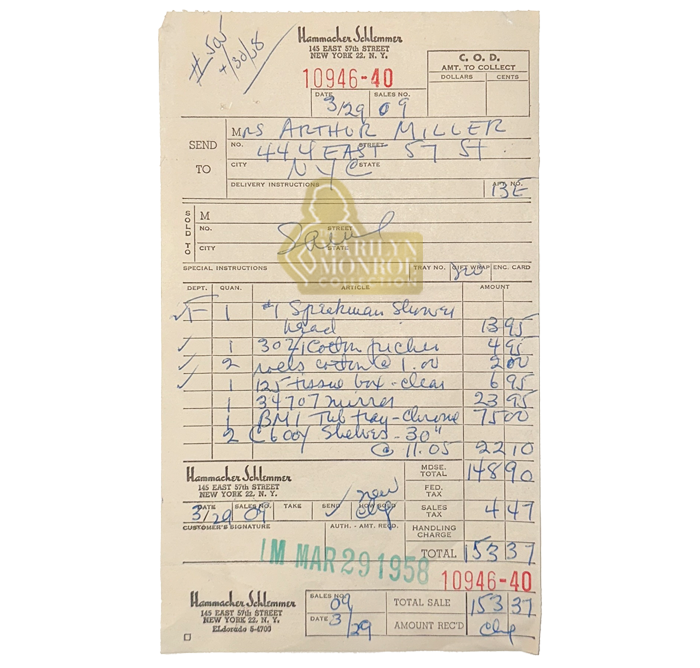 #505
+ 130/58
Hammacher Schlemmer
145 EAST 57th STREET
NEW YORK 22, N. Y.
10946-40
C. O. D.
AMT. TO COLLECT
DOLLARS CENTS
DATE SALES NO.
3/29 09
SEND TO
MRS ARTHUR MILLER
NO. STREET
444 EAST 57 ST.
CITY STATE
NYC
DELIVERY INSTRUCTIONS APT. NO.
13E
SOLD TO
M
NO. STREET
Same
CITY STATE
THE MARILYN MONROE COLLECTION
SPECIAL INSTRUCTIONS TRAY NO. GIFT WRAP ENC. CARD
DEPT. QUAN. ARTICLE AMOUNT
✓F 1 #1 Speakman Shower
head 13 95
✓ 1 3021 Cotton picker 4 95
✓ 2 rolls cotton @ 1.00 2 00
✓ 1 125 tissue box - clear 6 95
1 34707 mirror 23 95
1 BM1 Tub tray - chrome 75 00
2 C600Y Shelves - 30"
@ 11.05 22 10
Hammacher Schlemmer
145 EAST 57th STREET
NEW YORK 22, N. Y.
MDSE. TOTAL 148 90
FED. TAX
DATE SALES NO. TAKE SEND HOW SOLD
3/29 09 ✓ new chg
SALES TAX 4 47
CUSTOMER'S SIGNATURE AUTH. - AMT. REC'D.
HANDLING CHARGE
TOTAL 153 37
IM MAR 29 1958
10946-40
Hammacher Schlemmer
145 EAST 57th STREET
NEW YORK 22, N. Y.
ELdorado 5-4700
SALES NO. 09
TOTAL SALE 153 37
DATE 3/29
AMOUNT REC'D chg